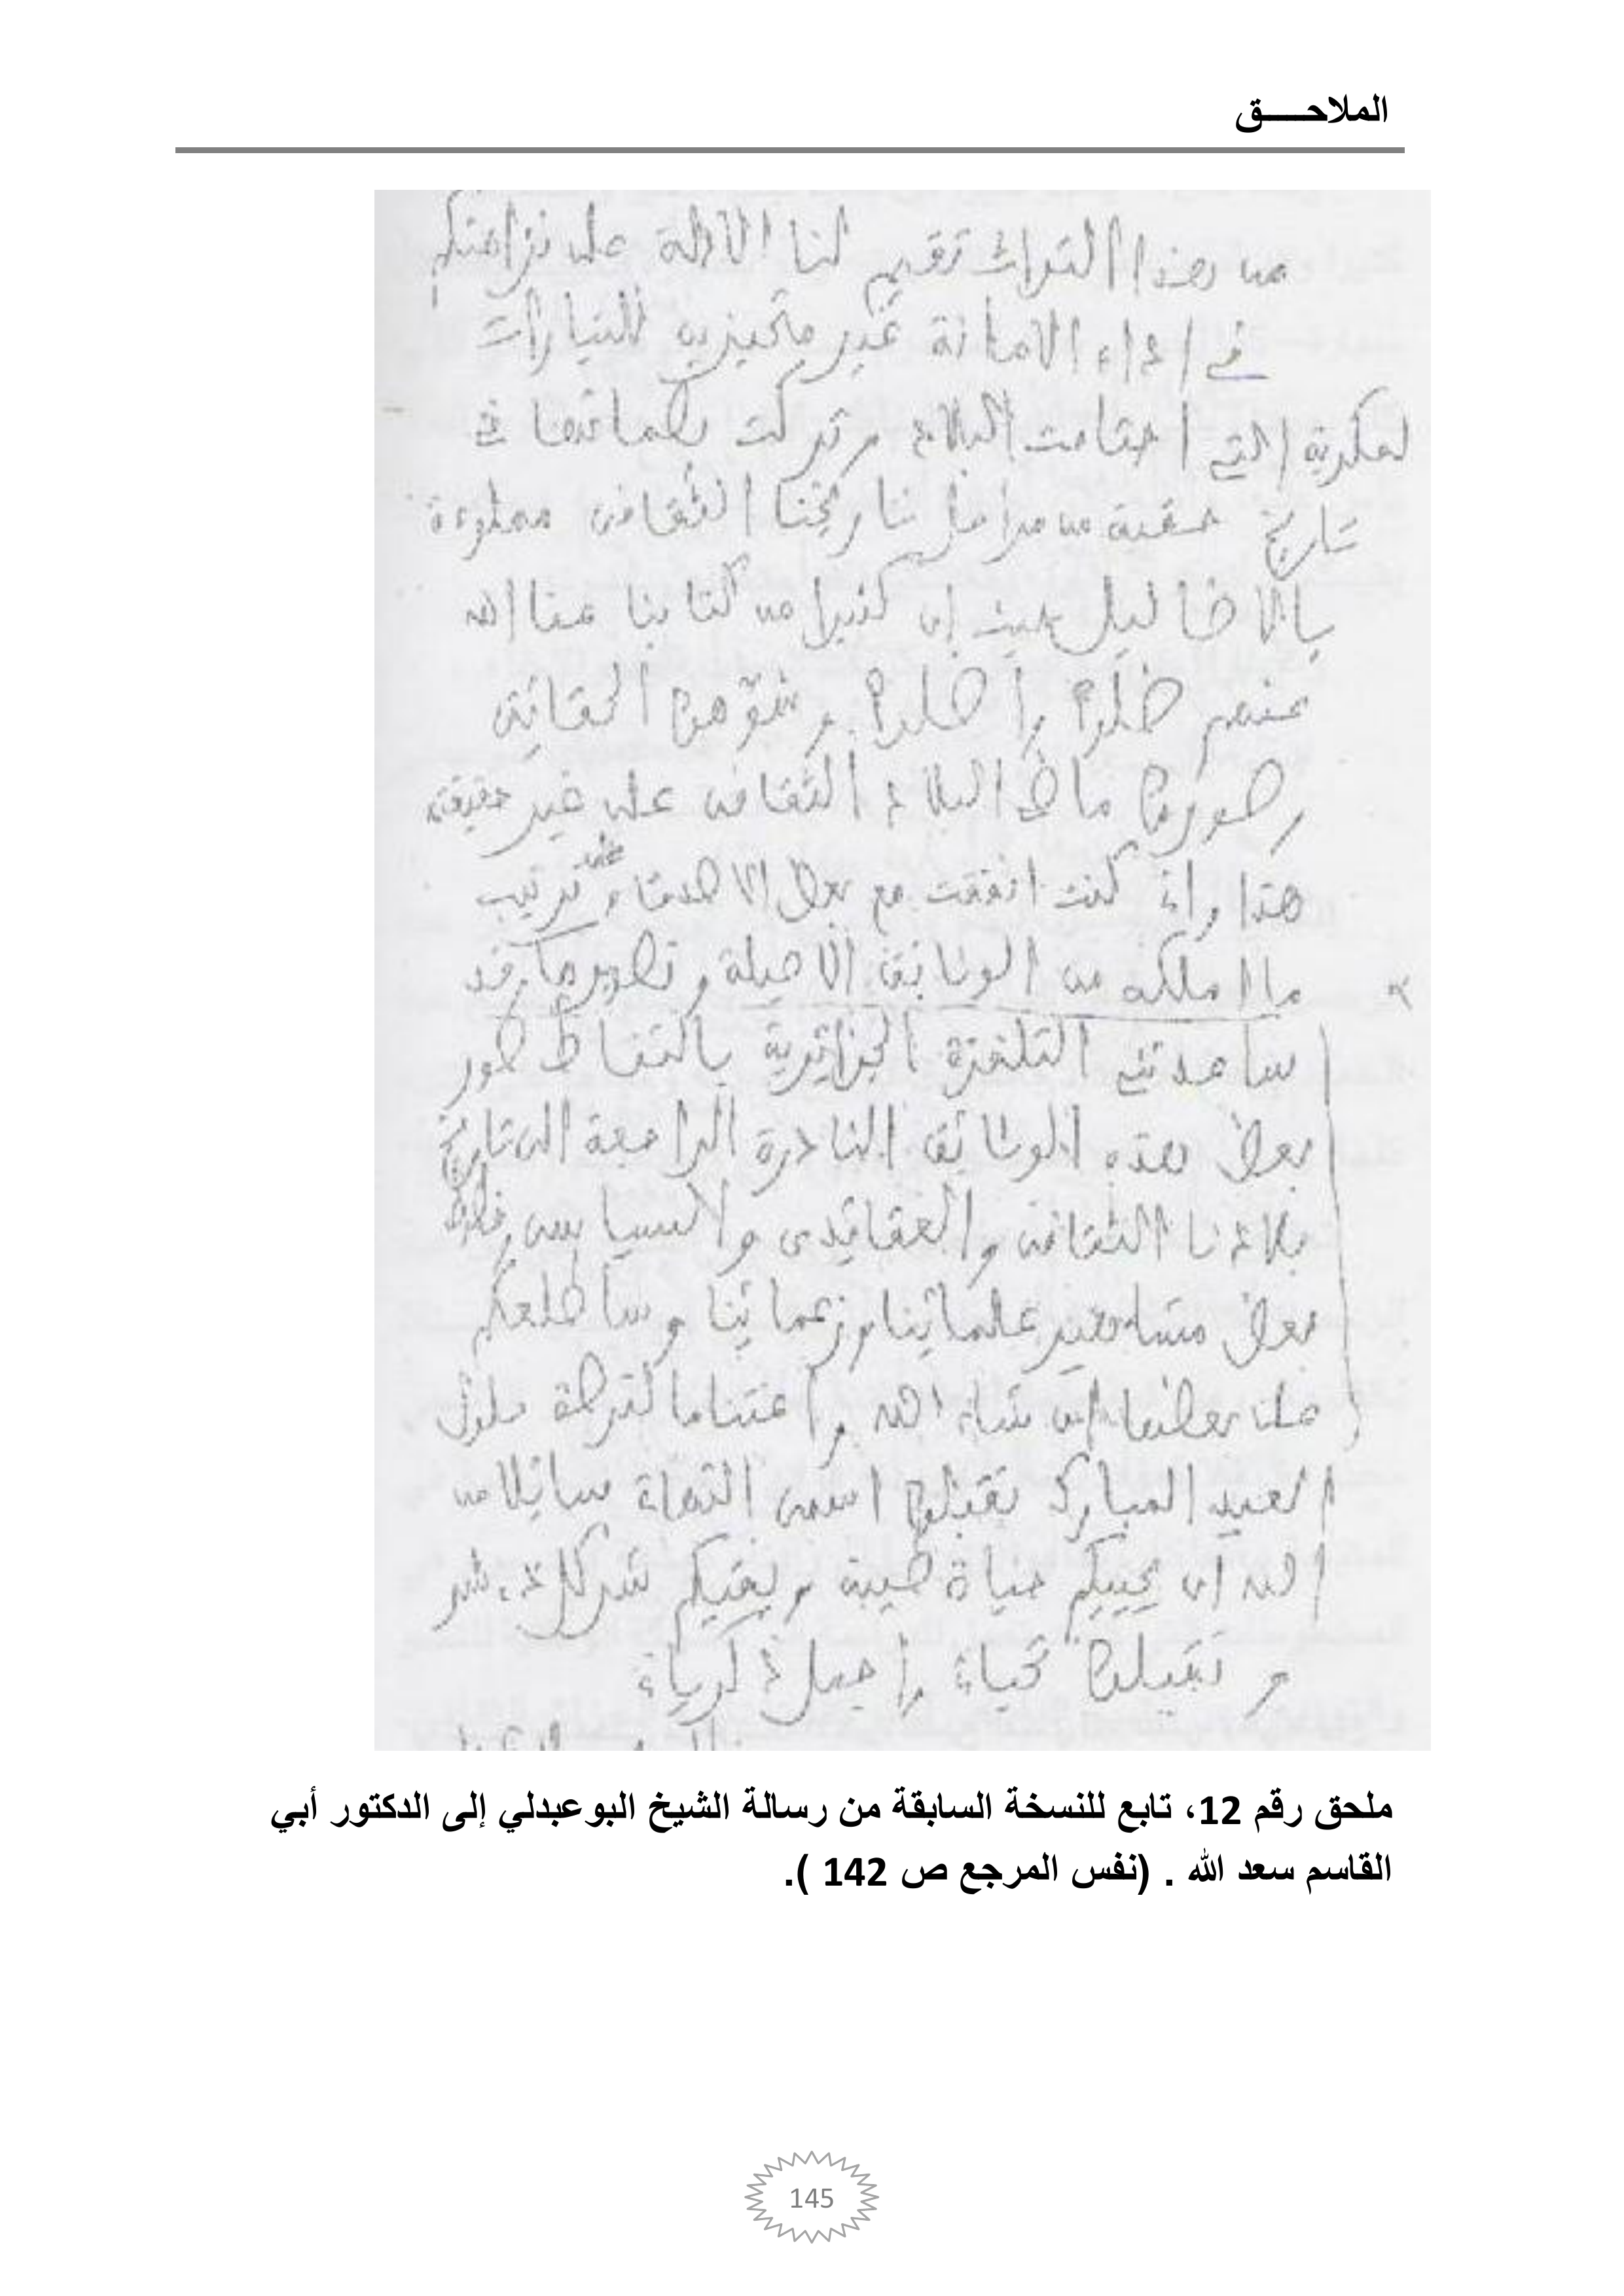 الملاحـــــق
من هذا التراث تقيم لنا الادلة على نزاهتكم
في اداء الامانة غير متحيزين للتيارات
لفكرية التي اجتاحت البلاد وتركت بصماتها في
تاريخ حقبة من مراحل تاريخنا الثقافى مملوءة
بالاضاليل حيث ان كثيرا من كتابنا عفا الله
عنهم ضلوا وأضلوا وشوهوا الحقائق
وصوروا ماضى البلاد الثقافى على غير حقيقته
هذا واذ كنت اتفقت مع بعض الاصدقاء على ترتيب
ما املكه من الوثائق الاصيلة وتصويرها وقد
ساعدتني التلفزة الجزائرية بالتقاط صور
بعض هذه الوثائق النادرة الراجعة الى تاريخ
بلادنا الثقافى والعقائدى والسياسى
بعض مشاهير علمائنا وزعمائنا وسأطلعكم
على بعضها ان شاء الله واغتناما لفرصة حلول
العيد المبارك تقبلوا اسمى التهاني سائلا من
الله ان يحييكم حياة طيبة ويقيكم شر كل ذي شر
وتقبلوا تحيات واجمل ذكريات
ملحق رقم 12، تابع للنسخة السابقة من رسالة الشيخ البوعبدلي إلى الدكتور أبي
القاسم سعد الله . (نفس المرجع ص 142 ).
145